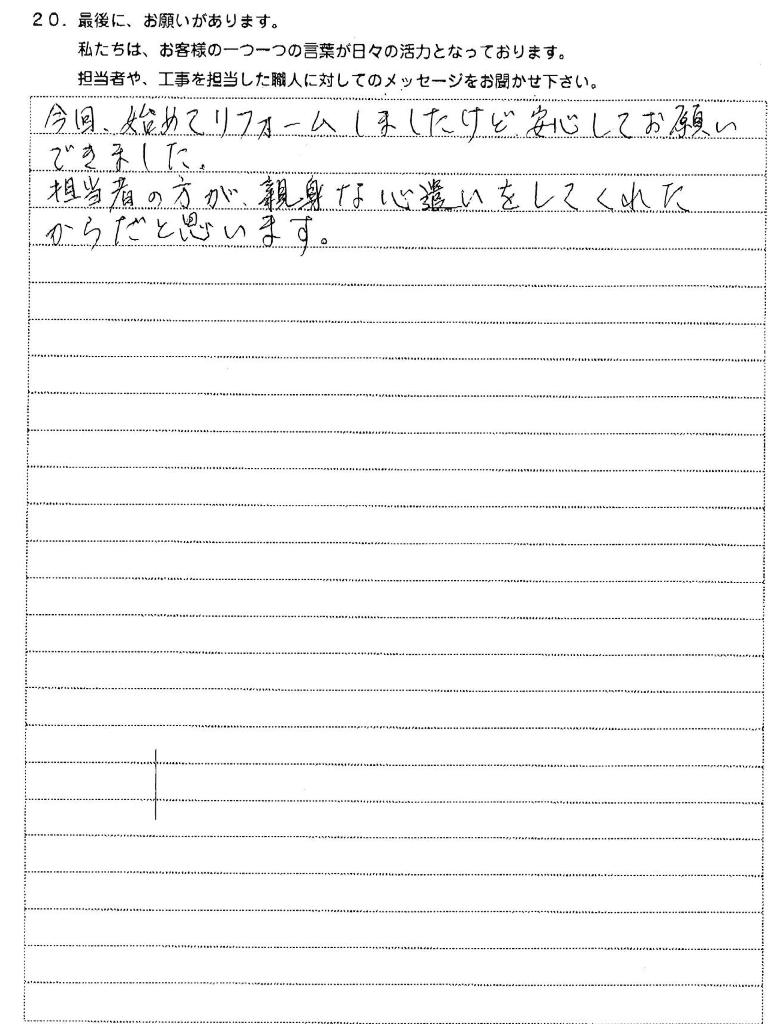 20. 最後に、お願いがあります。
私たちは、お客様の一つ一つの言葉が日々の活力となっております。
担当者や、工事を担当した職人に対してのメッセージをお聞かせ下さい。
今回、始めてリフォームしましたけど、安心してお願い
できました。
担当者の方が、親身な心遣いをしてくれた
からだと思います。